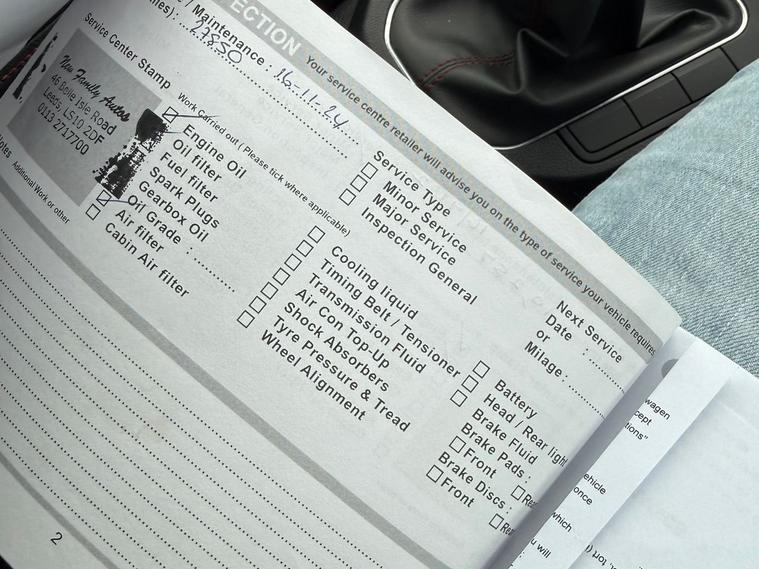 ECTION Your service centre retailer will advise you on the type of service your vehicle requires
/ Maintenance : 16-11-24
27850
Service Center Stamp
New Family Autos
46 Belle Isle Road
Leeds LS10 2DF
0113 2717700
Service Type
Minor Service
Major Service
Inspection General
Next Service
Date :
or
Milage :
Work Carried out ( Please tick where applicable)
Engine Oil
Oil filter
Fuel filter
Spark Plugs
Gearbox Oil
Oil Grade :
Air filter
Cabin Air filter
Cooling liquid
Timing Belt / Tensioner
Transmission Fluid
Air Con Top-Up
Shock Absorbers
Tyre Pressure & Tread
Wheel Alignment
Battery
Head / Rear light
Brake Fluid
Brake Pads :
Front
Brake Discs :
Front
Additional Work or other
2
wagen
cept
tions"
ehicle
once
which
u will